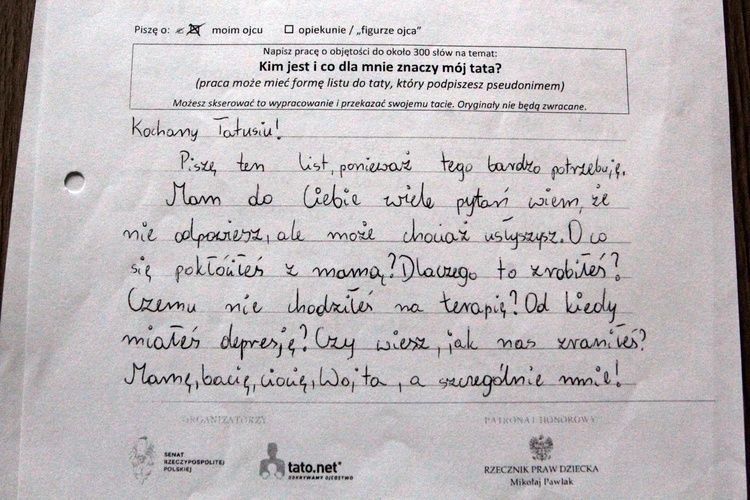 Piszę o: ☒ moim ojcu ☐ opiekunie / „figurze ojca”
Napisz pracę o objętości do około 300 słów na temat:
Kim jest i co dla mnie znaczy mój tata?
(praca może mieć formę listu do taty, który podpiszesz pseudonimem)
Możesz skserować to wypracowanie i przekazać swojemu tacie. Oryginały nie będą zwracane.
Kochany Tatusiu!
Piszę ten list, ponieważ tego bardzo potrzebuję.
Mam do Ciebie wiele pytań wiem, że
nie odpowiesz, ale może chociaż usłyszysz. O co
się pokłóciłeś z mamą? Dlaczego to zrobiłeś?
Czemu nie chodziłeś na terapię? Od kiedy
miałeś depresję? Czy wiesz, jak nas zraniłeś?
Mamę, bacię, ciocię, Wojta, a szczególnie mnie!
ORGANIZATORZY
PATRONAT HONOROWY
SENAT
RZECZYPOSPOLITEJ
POLSKIEJ
tato.net
ODKRYWAMY OJCOSTWO
RZECZNIK PRAW DZIECKA
Mikołaj Pawlak